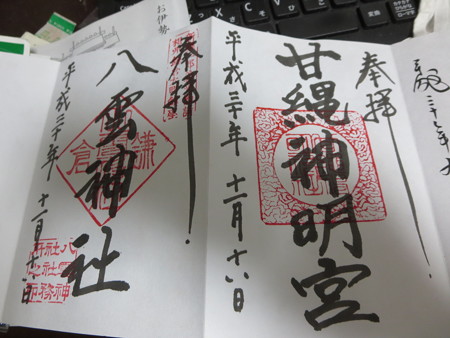 奉拝
甘縄神明宮
平成三十年 十一月十八日
奉拝
八雲神社
平成三十年 十一月十八日
鎌倉
お伊勢